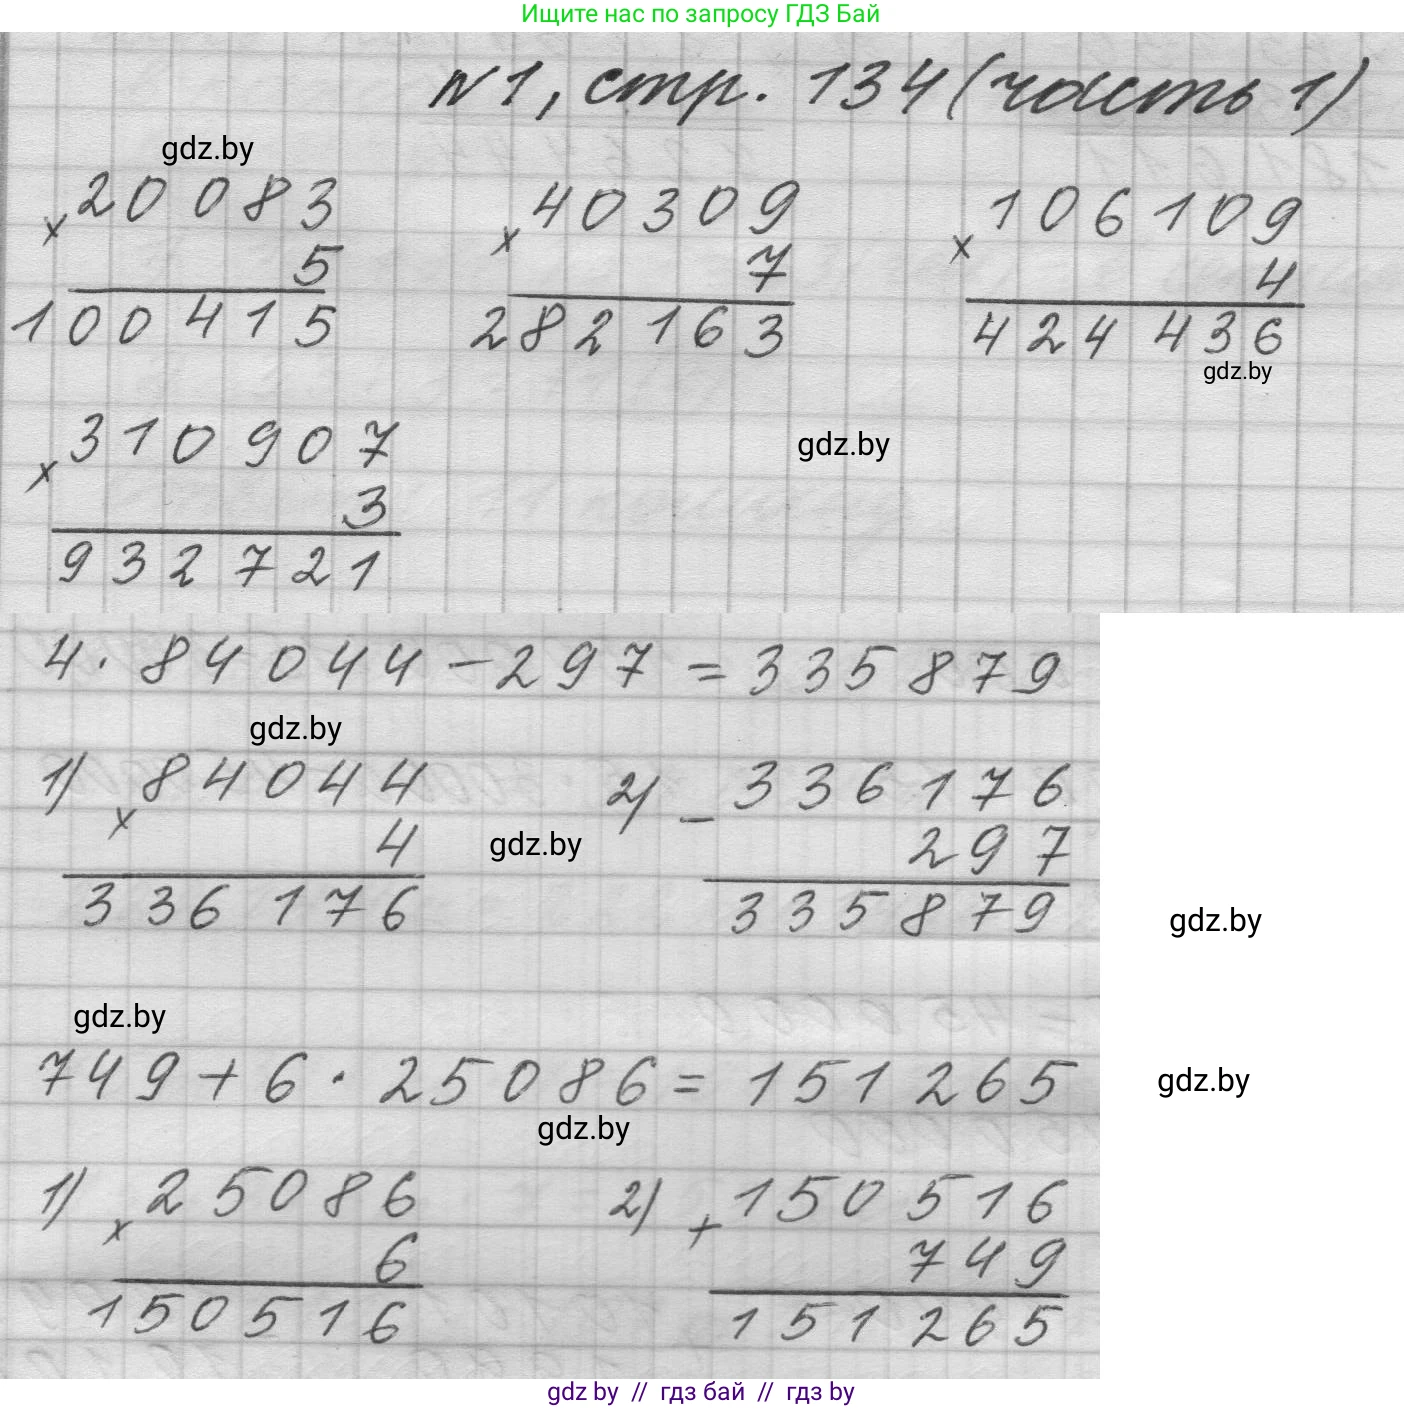 Ищите нас по запросу ГДЗ Бай
№1, стр. 134 (часть 1)
gdz.by
× 20083
5
100415
× 40309
7
282163
× 106109
4
424436
gdz.by
gdz.by
× 310907
3
932721
4 · 84044 - 297 = 335879
gdz.by
1) × 84044
4
336176
gdz.by
2) - 336176
297
335879
gdz.by
gdz.by
749 + 6 · 25086 = 151265
gdz.by
gdz.by
1) × 25086
6
150516
2) + 150516
749
151265
gdz by // гдз бай // гдз by